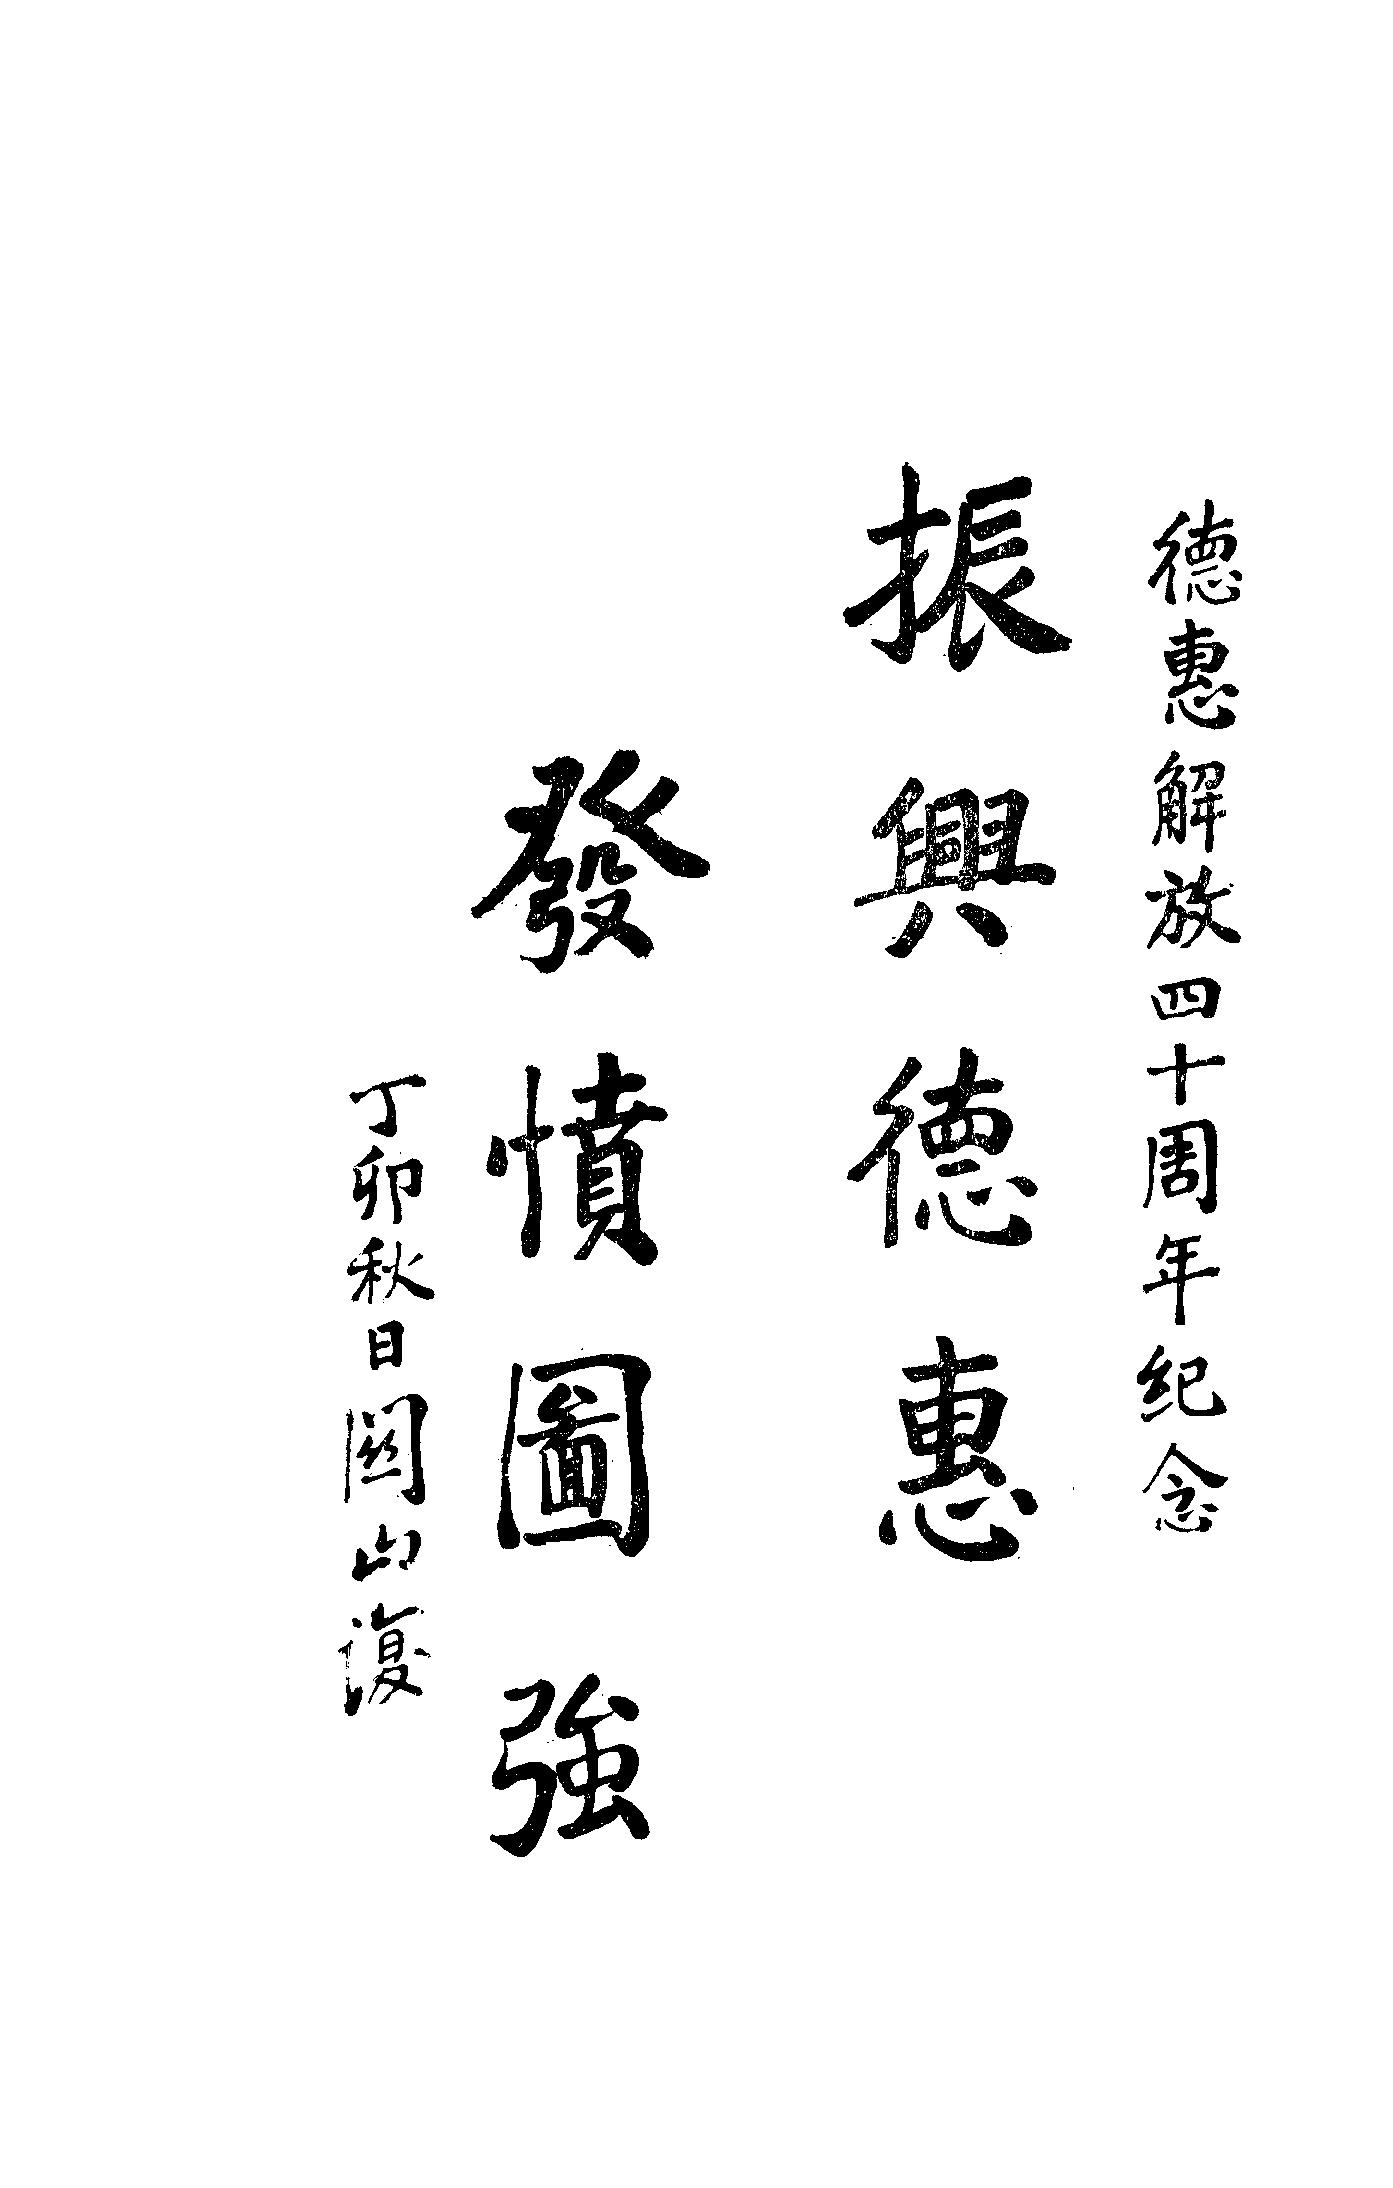 德惠解放四十周年纪念
振興德惠
發憤圖強
丁卯秋日関山復